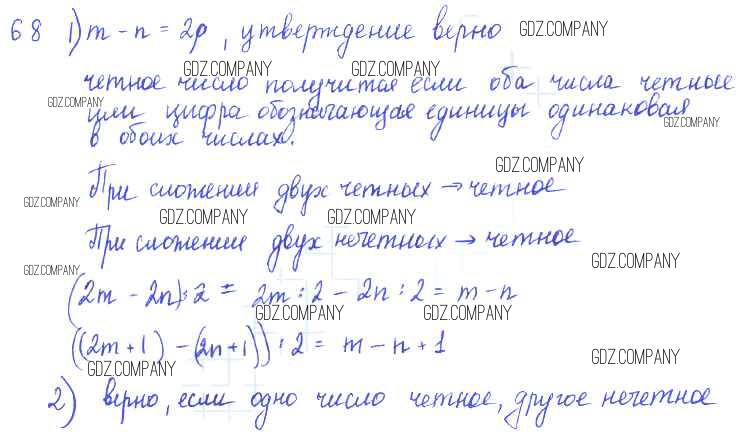 68 1) m - n = 2p, утверждение верно
GDZ.COMPANY
GDZ.COMPANY GDZ.COMPANY
четное число получится если оба числа четные
GDZ.COMPANY
или цифра обозначающая единицы одинаковая
GDZ.COMPANY
в обоих числах.
GDZ.COMPANY
При сложении двух четных → четное
GDZ.COMPANY
GDZ.COMPANY GDZ.COMPANY
При сложении двух нечетных → четное
GDZ.COMPANY
GDZ.COMPANY
(2m - 2n):2 = 2m : 2 - 2n : 2 = m - n
GDZ.COMPANY GDZ.COMPANY
((2m + 1) - (2n + 1)) : 2 = m - n + 1
GDZ.COMPANY
GDZ.COMPANY
2) верно, если одно число четное, другое нечетное